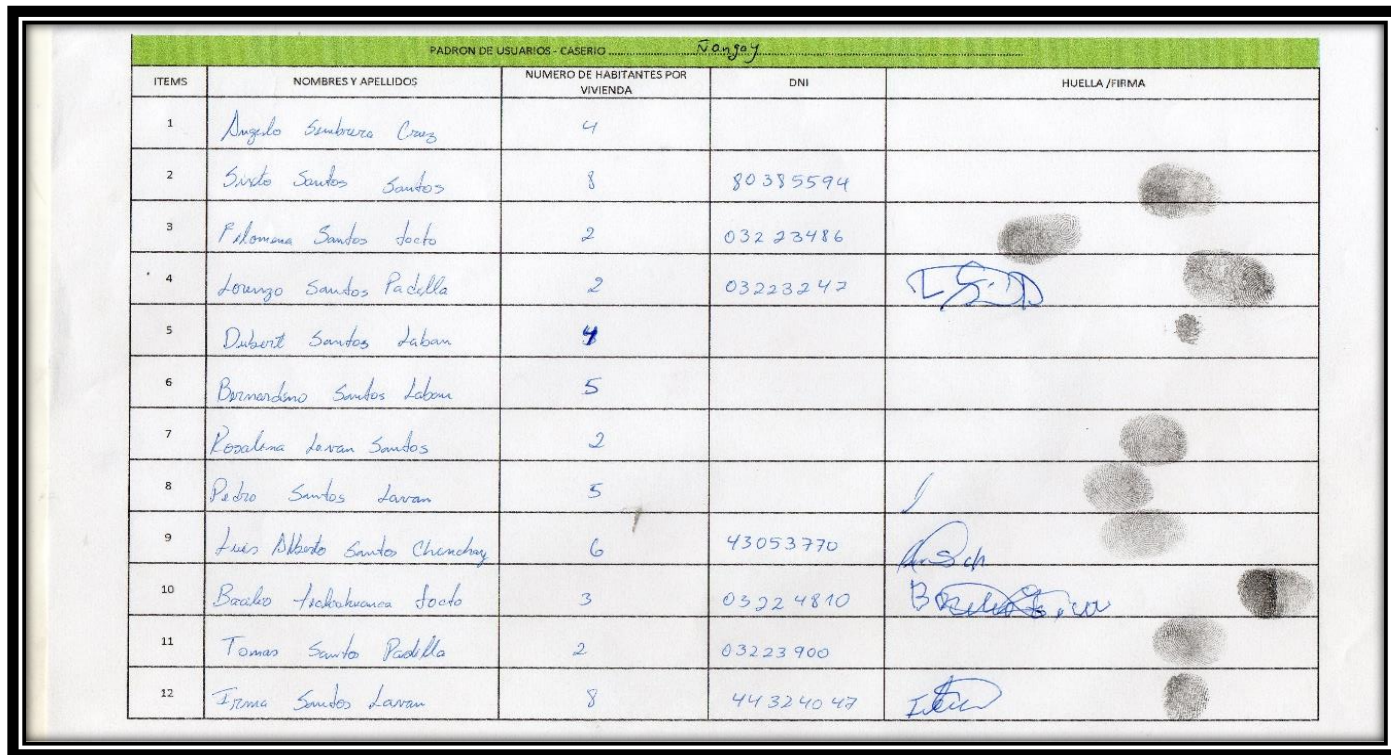 PADRON DE USUARIOS - CASERIO ............ Ñangay ............
ITEMS NOMBRES Y APELLIDOS NUMERO DE HABITANTES POR VIVIENDA DNI HUELLA /FIRMA
1 Angelo Sembrera Cruz 4
2 Sixto Santos Santos 8 80385594
3 Filomena Santos Jocto 2 03223486
4 Lorenzo Santos Padilla 2 03223247
5 Dubert Santos Laban 4
6 Bernardino Santos Laban 5
7 Rosalina Lavan Santos 2
8 Pedro Santos Lavan 5
9 Luis Alberto Santos Chinchay 6 43053770
10 Bacilio Jocto 3 03224810
11 Tomas Santos Padilla 2 03223900
12 Irma Santos Lavan 8 44324047